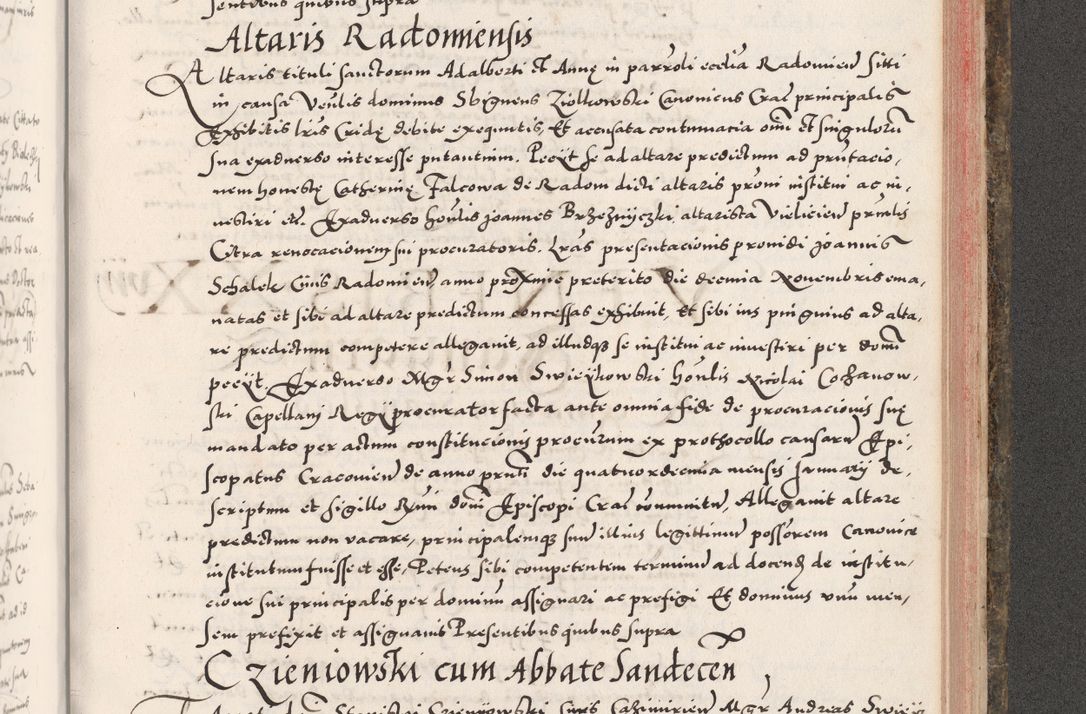 sentibus quibus supra
Altaris Radomiensis
Altaris tituli sanctorum Adalberti et Annę in parroli ecclia Radomien sitti
in causa Venlis dominus Sbigneus Ziolkowski Canonicus Crac principalis
Exhibitis lris Cridę debite exequutis, Et accusata contumacia oim et singulorū
sua exaduerso interesse putantium. Peeÿt se ad altare predictum ad pntacio,
nem honestę Catherinę Falcowa de Radom dicti altaris prōni institui ac in,
uestiri etc. Exaduerso honlis Joannes Brzeznÿczki, altarista Vielicien prnlis
Citra reuocacionem sui procuratoris. Lras presentacionis prouidi Joannis
Schalek Ciuis Radomien, anno proxime preterito die decima Nouembris ema,
natas et sibi ad altare predictum concessas exhibuit, Et sibi ius pinguius ad alta,
re predictum competere allegauit, ad illudq se institui ac inuestiri per dom
peeÿt. Exaduerso Mgr Simon Swieÿkowski honlis Nicolai Cochanow,
ski Capellani Regÿ procurator facta ante omnia fide de procuracionis suę
mandato per actum constitucionis procurum ex prothocollo causarū Epi,
scopatus Cracouien de anno prnti die quatuordecima mensis Januarÿ de,
scriptum et sigillo Rmi domi Episcopi Crac communitū, Allegauit altare
predictum non vacare, principalemq suū illius legittimū possorem Canonice
institutum fuisse et esse, Petens sibi competentem terminū ad docend de institu,
cione sui principalis per dominū assignari ac prefigi Et dominus vnū men,
sem prefixit et assignauit Presentibus quibus supra
Czieniowski cum Abbate Sandecen
Stanislai Czienÿowski Ciuis Cazimirien Mgr Andreas Swieÿc